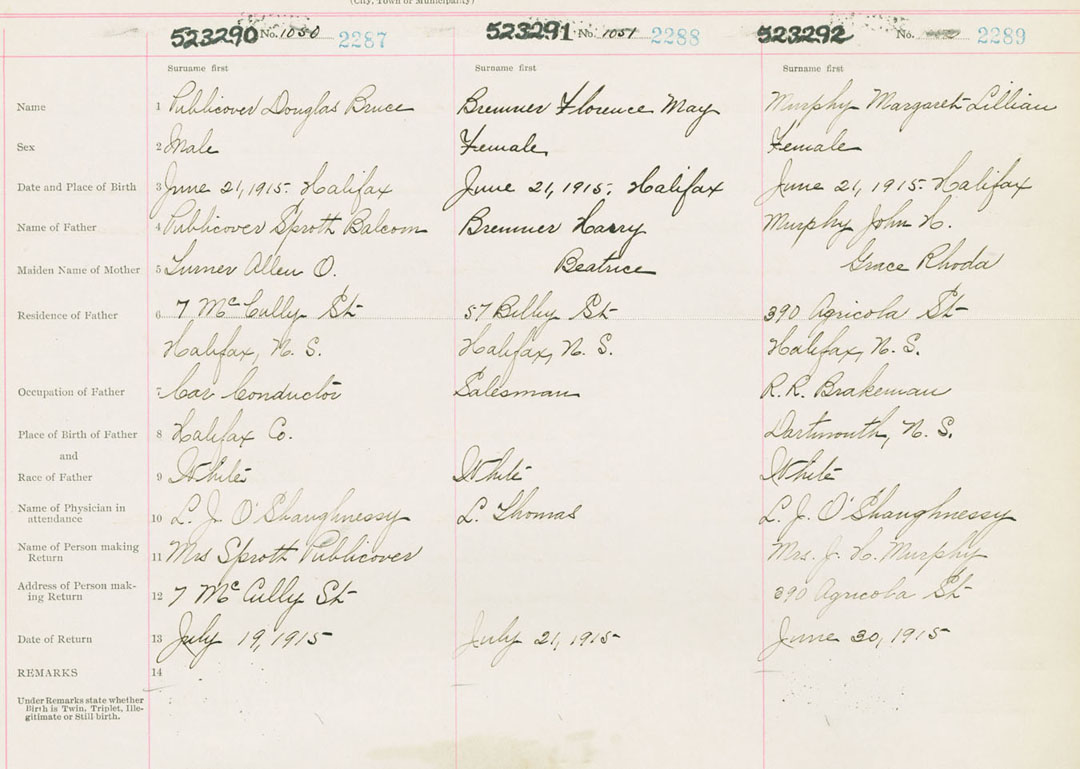 (City, Town or Municipality)
523290 No. 1050 2287 523291 No. 1051 2288 523292 No. 2289
Surname first Surname first Surname first
Name 1 Publicover Douglas Bruce Bremner Florence May Murphy Margaret Lillian
Sex 2 Male Female Female
Date and Place of Birth 3 June 21, 1915. Halifax June 21, 1915. Halifax June 21, 1915. Halifax
Name of Father 4 Publicover Sprott Balcom Bremner Harry Murphy John H.
Maiden Name of Mother 5 Turner Allen O. Beatrice Grace Rhoda
Residence of Father 6 7 McCully St 57 Bilby St 390 Agricola St
Halifax, N. S. Halifax, N. S. Halifax, N. S.
Occupation of Father 7 Car Conductor Salesman R.R. Brakeman
Place of Birth of Father 8 Halifax Co. Dartmouth, N. S.
and
Race of Father 9 White White White
Name of Physician in
attendance 10 L. J. O'Shaughnessy L. Thomas L. J. O'Shaughnessy
Name of Person making
Return 11 Mrs Sprott Publicover Mrs. J. H. Murphy
Address of Person mak-
ing Return 12 7 McCully St 390 Agricola St
Date of Return 13 July 19, 1915 July 21, 1915 June 30, 1915
REMARKS 14
Under Remarks state whether
Birth is Twin, Triplet, Ille-
gitimate or Still birth.